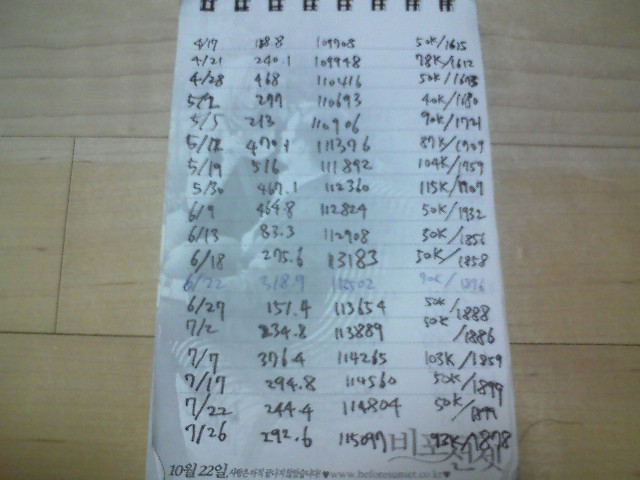 4/17 188.8 109708 50K/1615
4/21 240.1 109948 78K/1612
4/28 468 110416 50K/1693
5/2 277 110693 40K/1680
5/5 213 110906 90K/1721
5/12 470.1 111376 87K/1709
5/19 516 111892 104K/1759
5/30 467.1 112360 115K/1907
6/9 464.8 112824 50K/1932
6/13 83.3 112908 30K/1856
6/18 275.6 113183 50K/1858
6/22 318.9 113502 90K/1896
6/27 151.4 113654 50K/1888
7/2 234.8 113889 50K/1886
7/7 376.4 114265 103K/1859
7/17 294.8 114560 50K/1899
7/22 244.4 114804 50K/1899
7/26 292.6 115097 92K/1878
비포 선셋
10월 22일, 사랑은 아직 끝나지 않았습니다! ♥www.beforesunset.co.kr♥